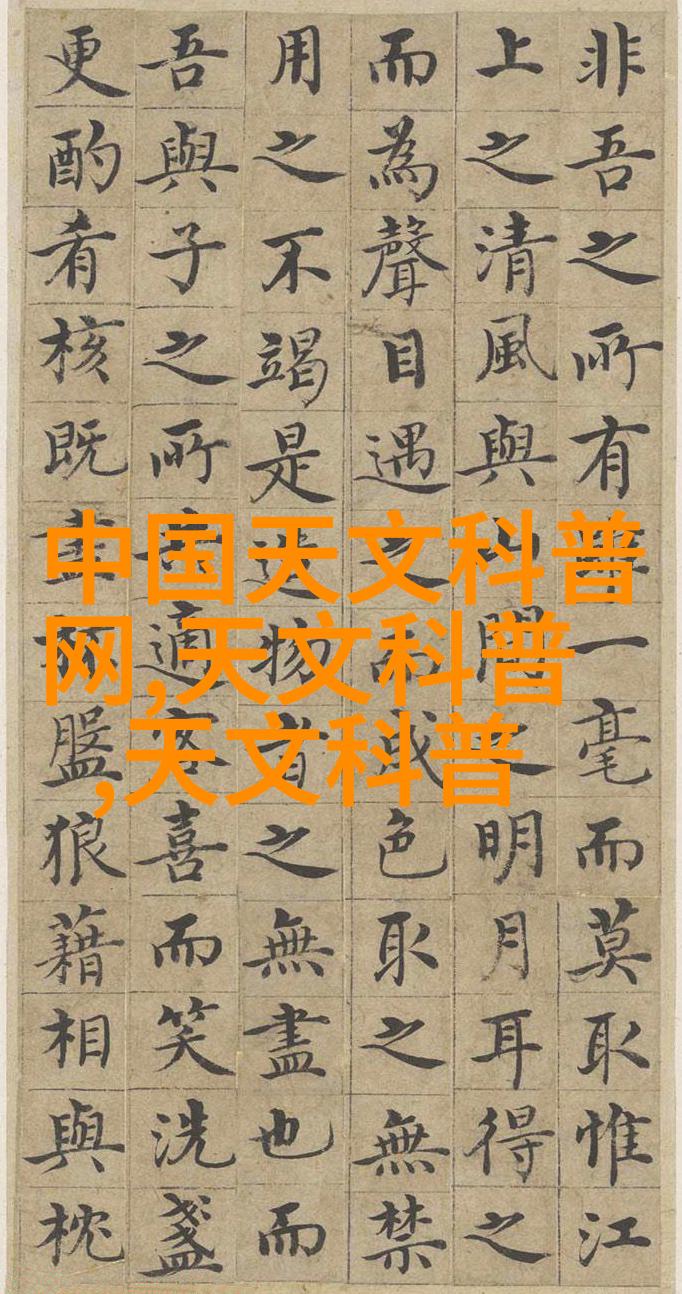 非吾之所有一毫而莫取惟江
上之清風與山間之明月耳得之
而為聲目遇之而成色取之無禁
用之不竭是造物者之無盡也而
吾與子之所適客喜而笑洗盞
更酌肴核既盡杯盤狼藉相與枕
中国天文科普
网,天文科普
,天文科普